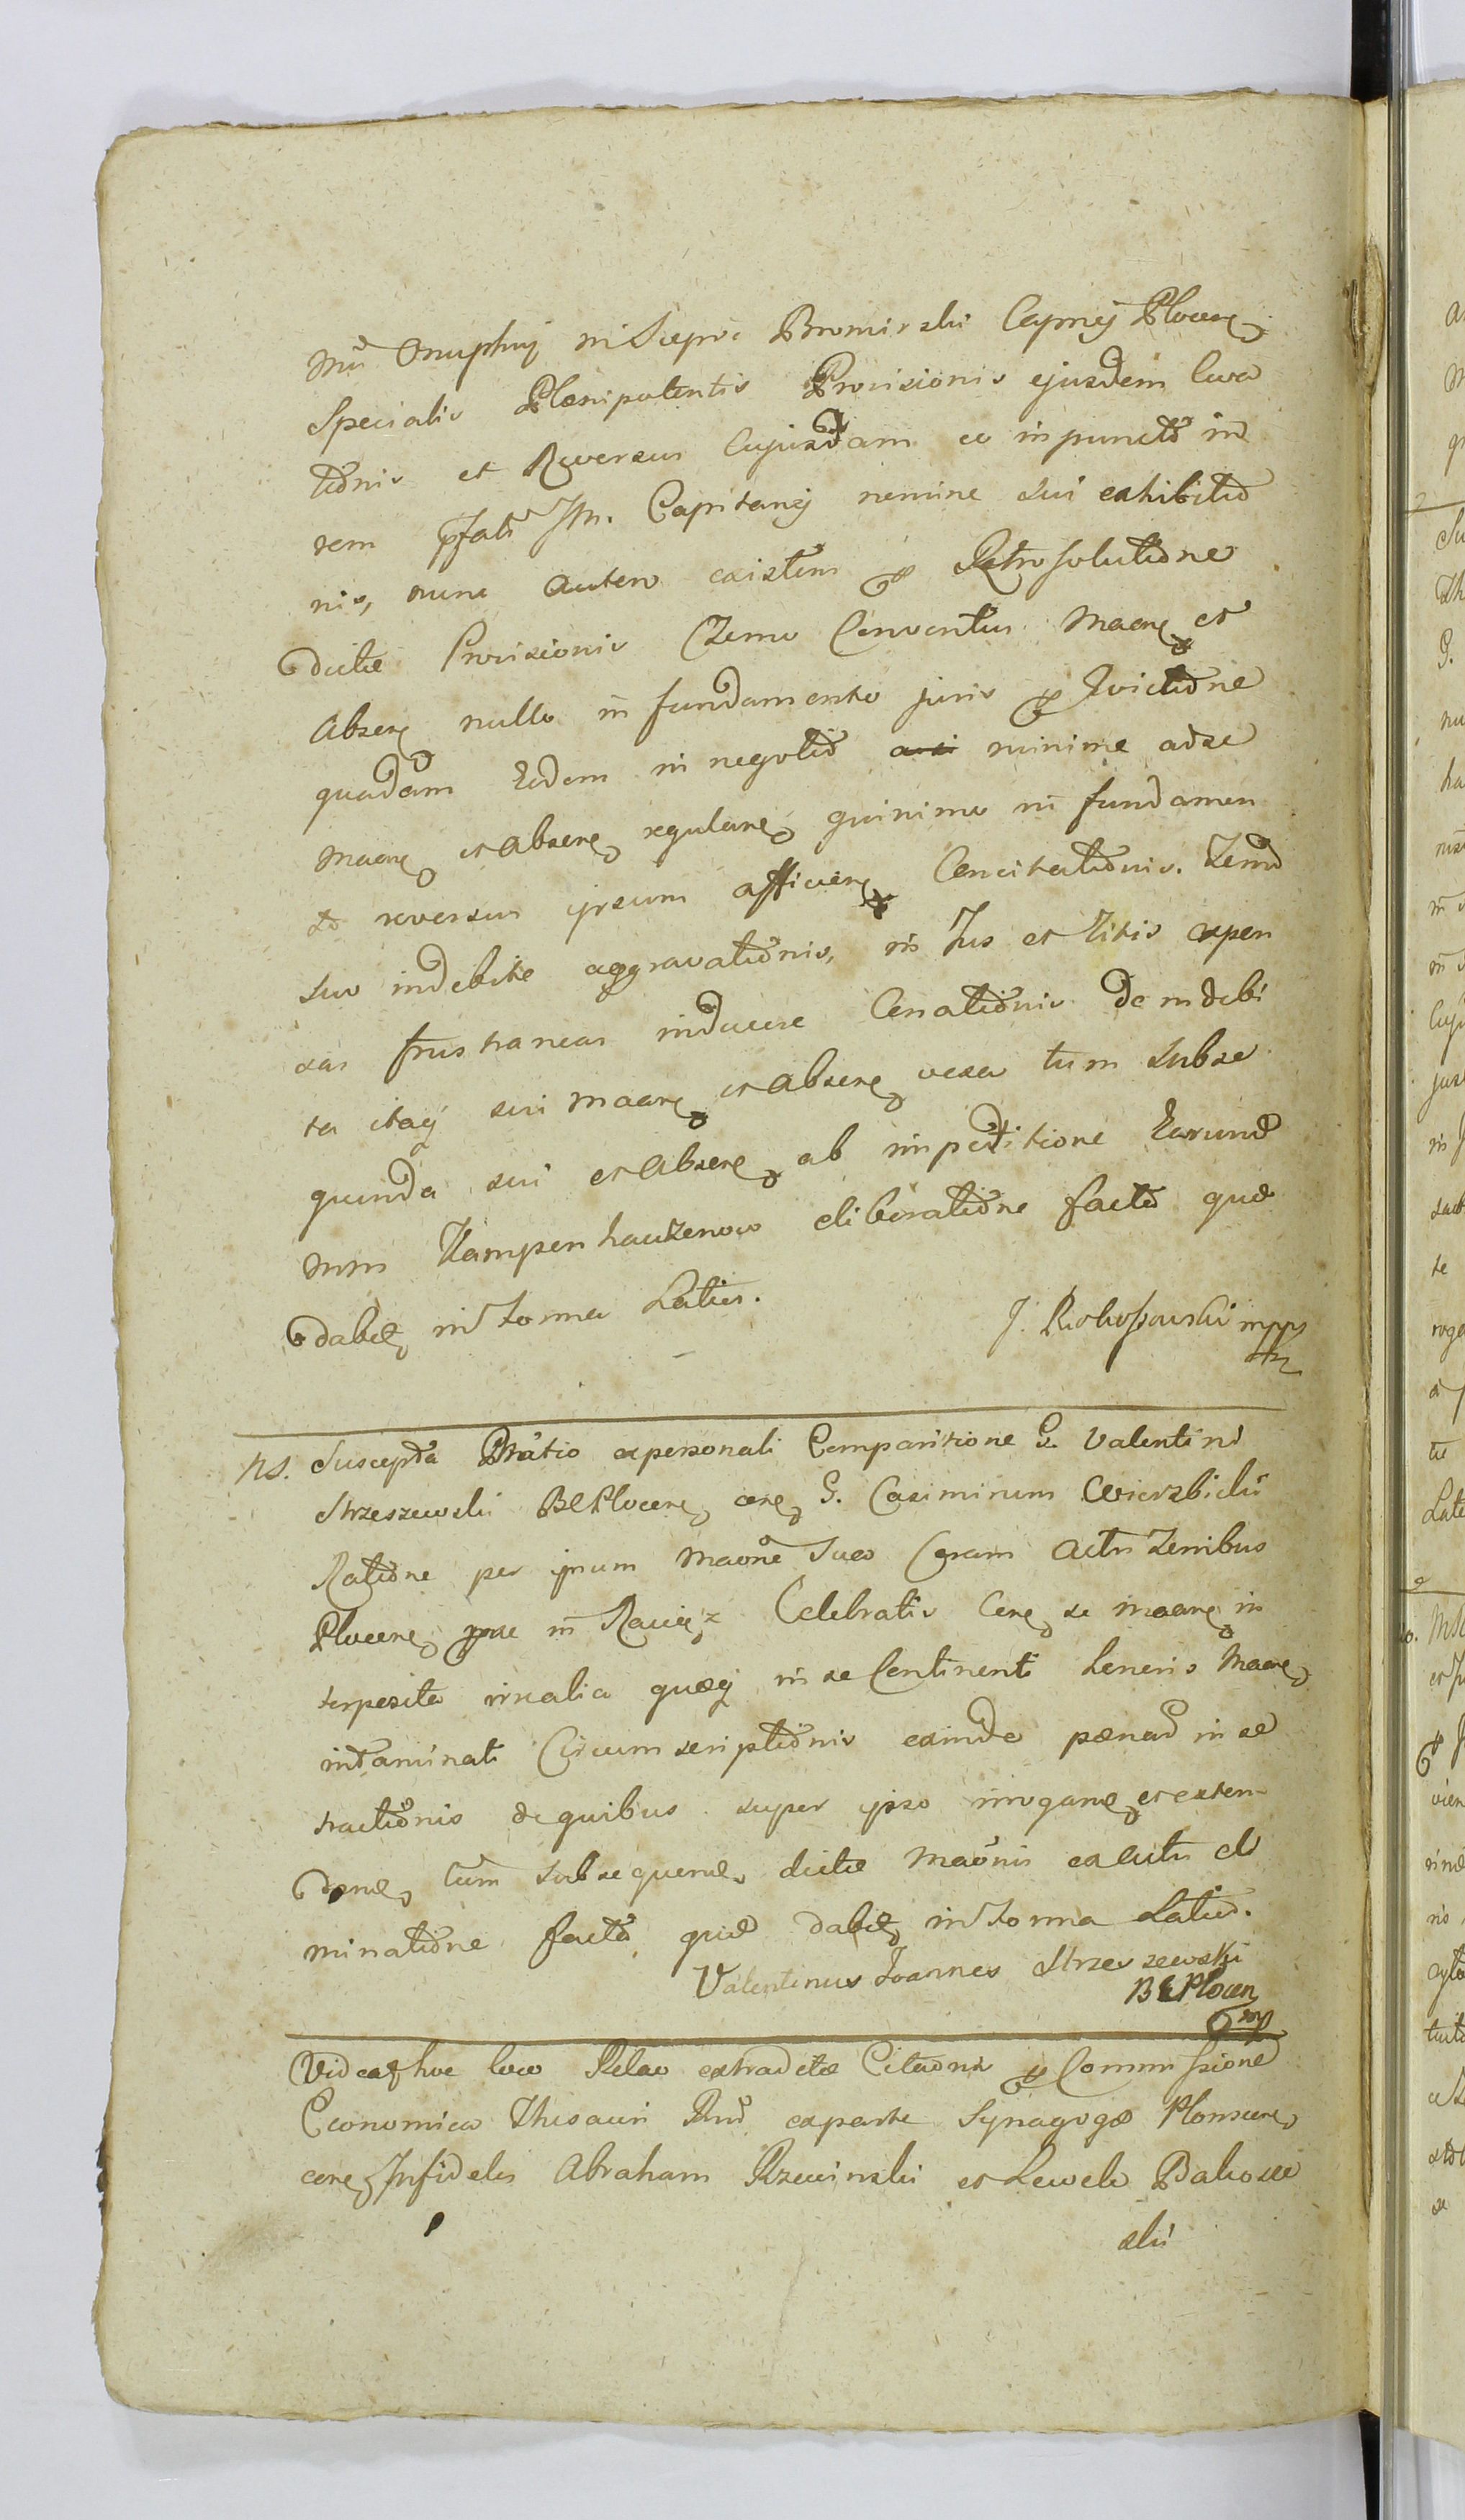 Mci Onuphrij in Sierpc Bromirski Capnej Plocen
Specialis Plenipotentis Provisionis ejusdem Cura
tionis et Reversus Cujusdam eo in puncto in
rem pfati Jm. Capitanej nemine sui exhibitio
nis, nunc autem existen Retro solutione
dictæ Provisionis Czemu Conventus Maaren et
Absen nullo in fundamento juris Evictione
quadam Eodem in negotio minime ad se
Maaren et Absen regularen quinimo in fundamen
to reversus ipsum afficien Concitationis. Zemo
suo indebite aggravationis, in Jus et Litis expen
sas frustraneas inducere Conationis de indebi
ta itaq sui maaren et absen vexa tum subse
quenda sui et Absen ab impetitione Earund
Mm Kampenhauzenow eliberatione facto quo
dabit in Termo Latius.
J. Rokossowski mpp
NS. Suscepta Pnatio ex personali Comparitione G. Valentini
Strzeszewski BCPlocen cen G. Casimirum Wierzbicki
Ratione per ipsum Maone suo Coram Actis Zenibus
Plocen in Raciąz Celebratis Cen se maaren in
terposita inscalia quæq in se Continenti Teneris Maaren
indaminati Circumscriptionis exinde pænar in se
tractionis de quibus super ipso irrogan et exten
den tum subsequen dictæ Maonis ex actis eli
minatione facto quo dabit in Termo Latius.
Valentinus Joannes Strzeszewski
BCPlocen
mp
Videat hoc loco Relao extraditæ Citaonis Commissione
Economica Thesauri Rni ex parte Synagogæ Plonscen
cen Infideles Abraham Rzewinski et Lewek Bakosze
ski